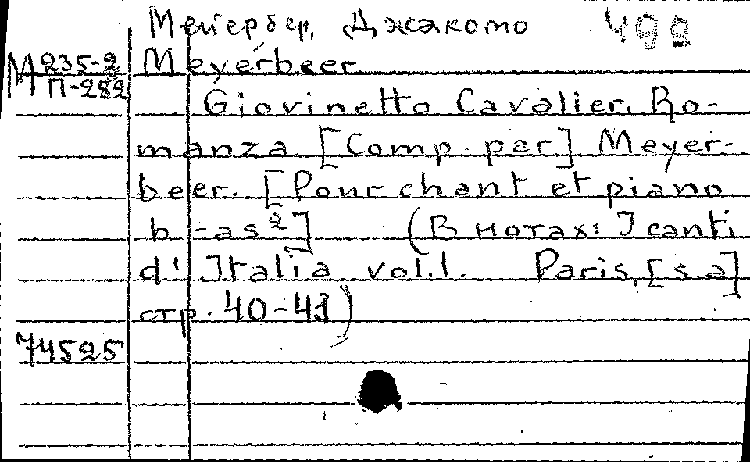 Мейербер, Джакомо 499
М 235-2 Meyerbeer.
П-282 Giovinetto Cavalier. Ro-
manza [Comp. par] Meyer-
beer. [Pour chant et piano
b -as²] (В нотах: I canti
d' Italia vol. 1. Paris, [s a]
стр. 40-41)
74525